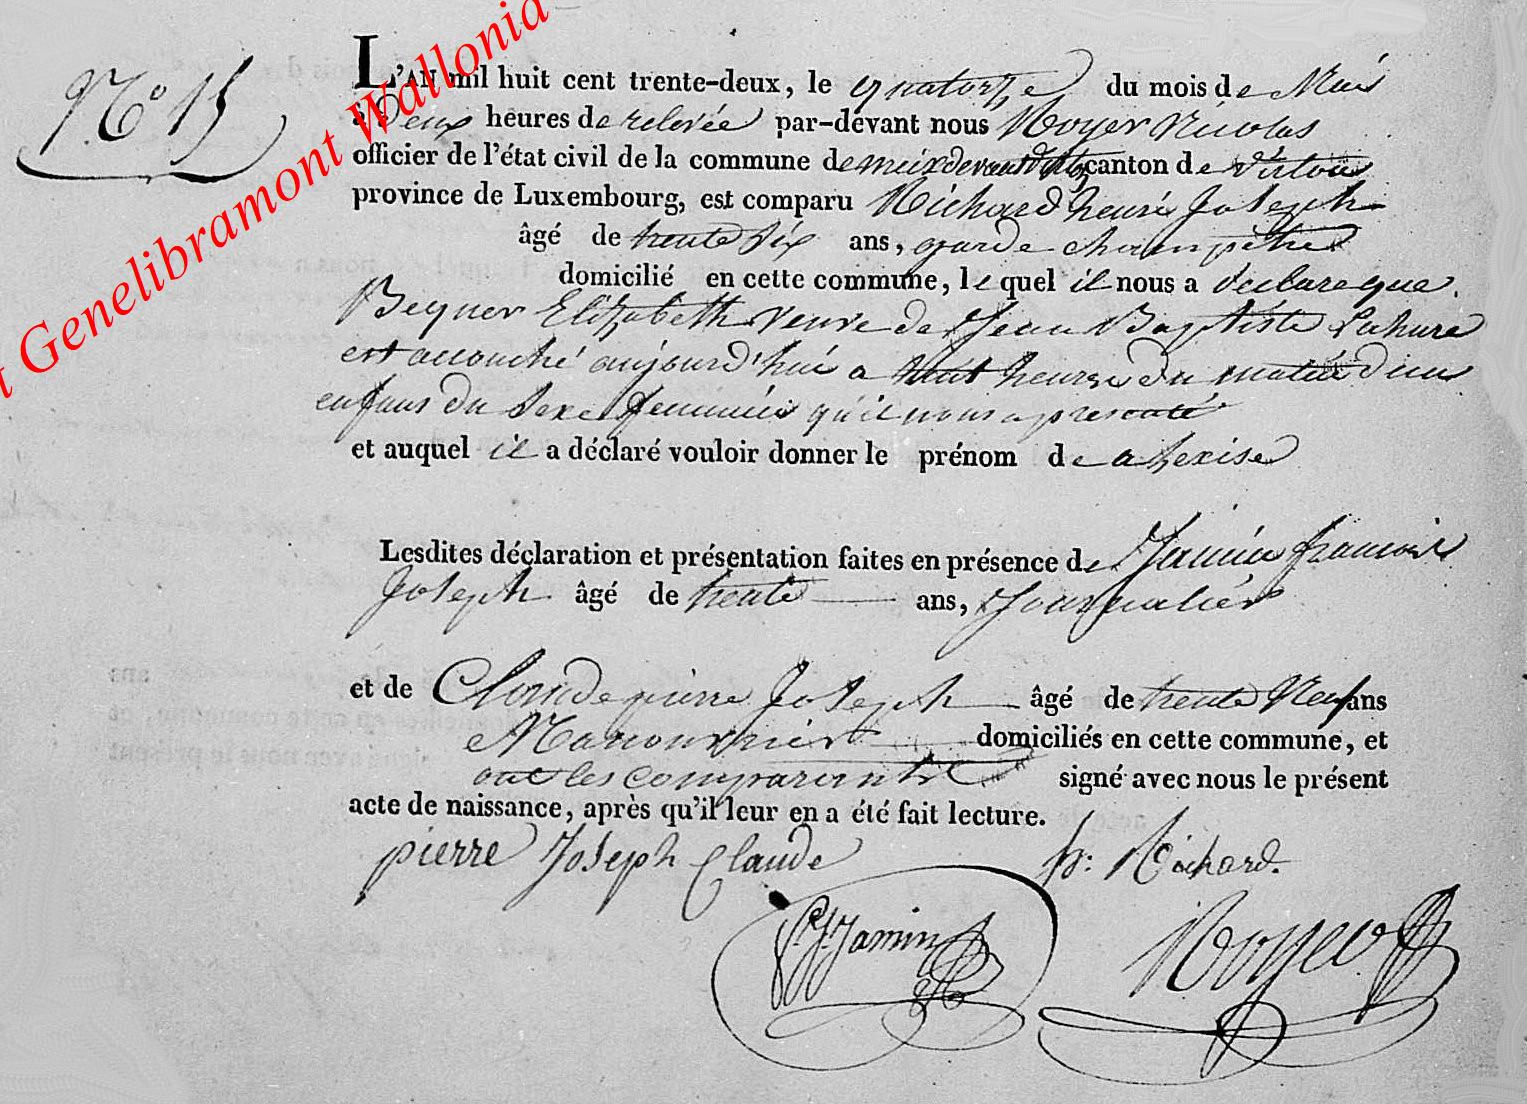 Genelibramont Wallonia
N.o 15
L'AN mil huit cent trente-deux, le quatorze du mois de Mai
à Deux heures de relevée par-devant nous Royer Nicolas
officier de l'état civil de la commune de meix devant Virton canton de Virton
province de Luxembourg, est comparu Richard henri Joseph
âgé de trente Six ans, garde champêtre
domicilié en cette commune, lequel il nous a déclare que
Elizabeth veuve de Jean Baptiste Lahure
est accouché aujourd'hui a huit heures du matin d'un
enfans du Sexe feminin qu'il nous a presenté
et auquel il a déclaré vouloir donner le prénom de
Lesdites déclaration et présentation faites en présence de Jamin francois
Joseph âgé de trente ans, Journalier
et de Claude pierre Joseph âgé de trente Neuf ans
Manouvrier domiciliés en cette commune, et
ont les comparants signé avec nous le présent
acte de naissance, après qu'il leur en a été fait lecture.
pierre Joseph Claude h: Richard.
f. J. Jamin Royer